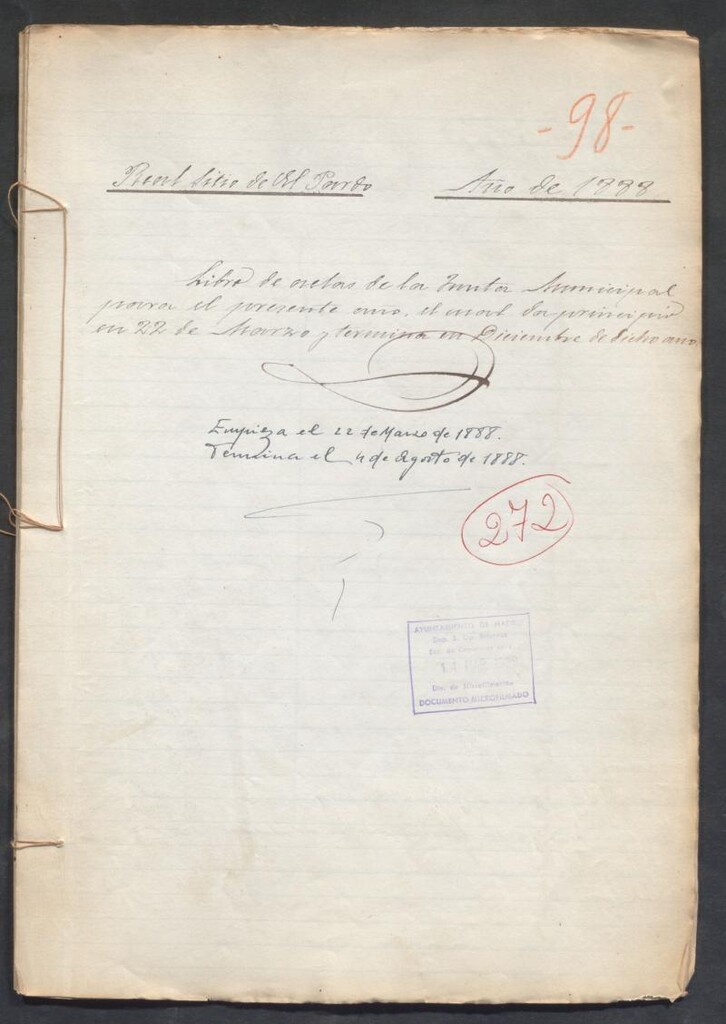 -98-
Real Sitio de El Pardo
Año de 1888
Libro de actas de la Junta Municipal
para el presente año, el cual da principio
en 22 de Marzo y termina en Diciembre de dicho año
Empieza el 22 de Marzo de 1888.
Termina el 4 de Agosto de 1888.
272
AYUNTAMIENTO DE MADRID
DOCUMENTO MICROFILMADO